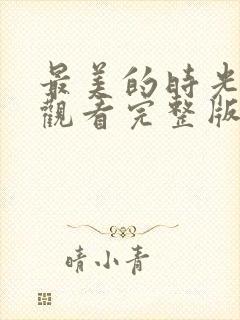 最美的時光
觀看完整版
晴小青